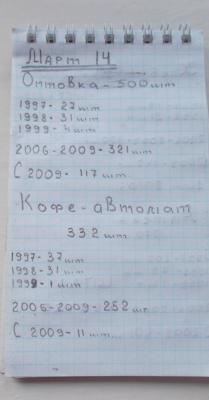 Март 14
Оптовка - 500 шт
1997 - 27 шт
1998 - 31 шт
1999 - 4 шт
2006-2009 - 321 шт
С 2009 - 117 шт
Кофе - автомат
332 шт
1997 - 37 шт
1998 - 31 шт
1999 - 1 шт
2006-2009 - 252 шт
С 2009 - 11 шт